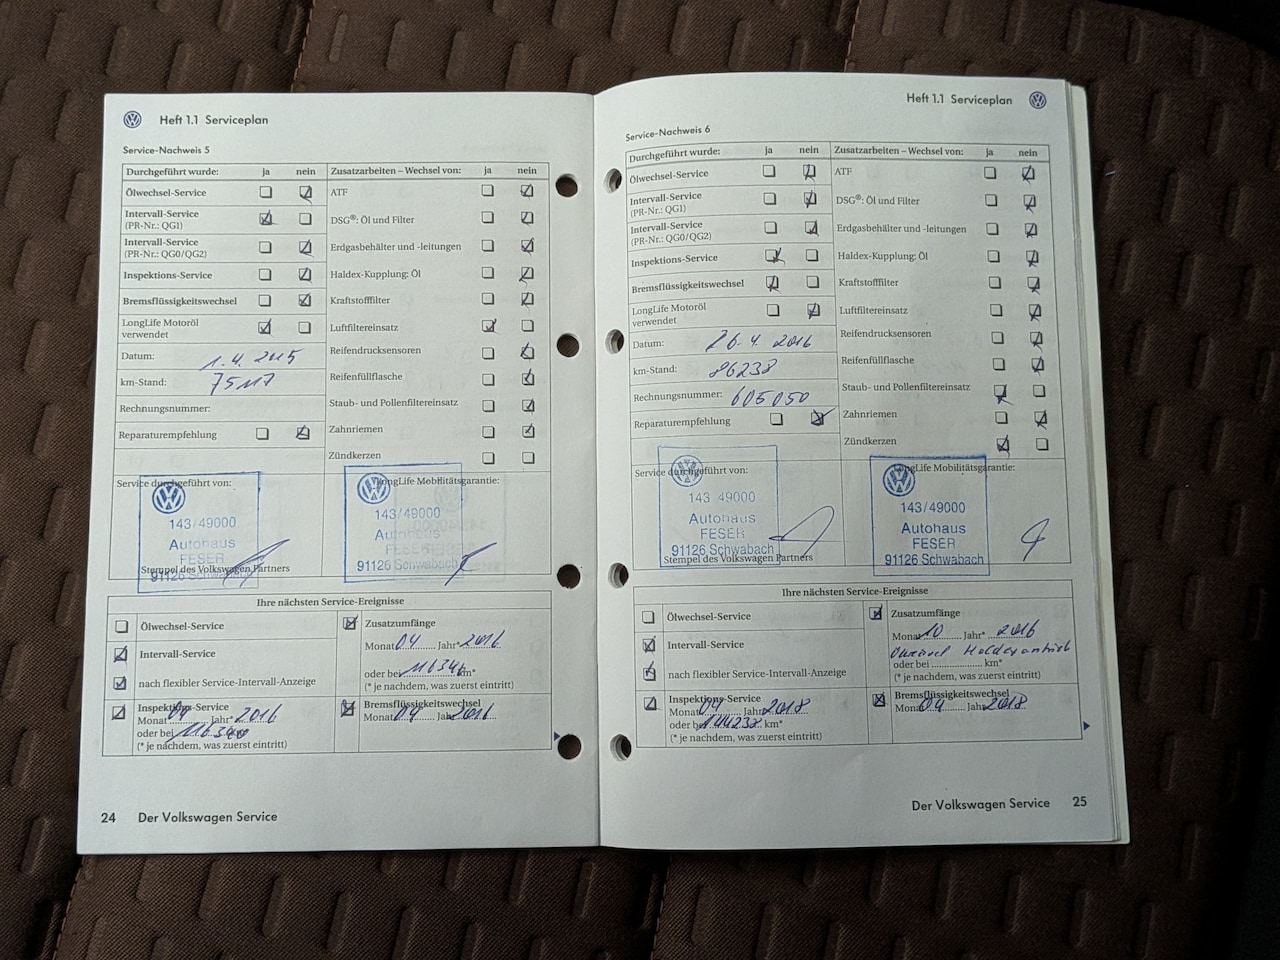 Heft 1.1 Serviceplan
Service-Nachweis 5
Durchgeführt wurde: ja nein
Ölwechsel-Service
Intervall-Service
(PR-Nr.: QG1)
Intervall-Service
(PR-Nr.: QG0/QG2)
Inspektions-Service
Bremsflüssigkeitswechsel
LongLife Motoröl
verwendet
Datum: 1.4.2015
km-Stand:
Rechnungsnummer:
Reparaturempfehlung
Zusatzarbeiten – Wechsel von: ja nein
ATF
DSG®: Öl und Filter
Erdgasbehälter und -leitungen
Haldex-Kupplung: Öl
Kraftstofffilter
Luftfiltereinsatz
Reifendrucksensoren
Reifenfüllflasche
Staub- und Pollenfiltereinsatz
Zahnriemen
Zündkerzen
Service durchgeführt von:
143/49000
Autohaus
FESER
91126 Schwabach
Stempel des Volkswagen Partners
LongLife Mobilitätsgarantie:
143/49000
Autohaus
FESER
91126 Schwabach
Ihre nächsten Service-Ereignisse
Ölwechsel-Service
Intervall-Service
nach flexibler Service-Intervall-Anzeige
Zusatzumfänge
Monat 04 Jahr* 2016
oder bei km*
(* je nachdem, was zuerst eintritt)
Inspektions-Service
Monat 04 Jahr* 2016
oder bei
(* je nachdem, was zuerst eintritt)
Bremsflüssigkeitswechsel
Monat 04 Jahr 2016
24 Der Volkswagen Service
Heft 1.1 Serviceplan
Service-Nachweis 6
Durchgeführt wurde: ja nein
Ölwechsel-Service
Intervall-Service
(PR-Nr.: QG1)
Intervall-Service
(PR-Nr.: QG0/QG2)
Inspektions-Service
Bremsflüssigkeitswechsel
LongLife Motoröl
verwendet
Datum: 26.4.2016
km-Stand: 86238
Rechnungsnummer: 605050
Reparaturempfehlung
Zusatzarbeiten – Wechsel von: ja nein
ATF
DSG®: Öl und Filter
Erdgasbehälter und -leitungen
Haldex-Kupplung: Öl
Kraftstofffilter
Luftfiltereinsatz
Reifendrucksensoren
Reifenfüllflasche
Staub- und Pollenfiltereinsatz
Zahnriemen
Zündkerzen
Service durchgeführt von:
143 49000
Autohaus
FESER
91126 Schwabach
Stempel des Volkswagen Partners
LongLife Mobilitätsgarantie:
143/49000
Autohaus
FESER
91126 Schwabach
Ihre nächsten Service-Ereignisse
Ölwechsel-Service
Intervall-Service
nach flexibler Service-Intervall-Anzeige
Zusatzumfänge
Monat 10 Jahr* 2016
oder bei km*
(* je nachdem, was zuerst eintritt)
Inspektions-Service
Monat 04 Jahr* 2018
oder bei 144238 km*
(* je nachdem, was zuerst eintritt)
Bremsflüssigkeitswechsel
Monat 04 Jahr 2018
Der Volkswagen Service 25